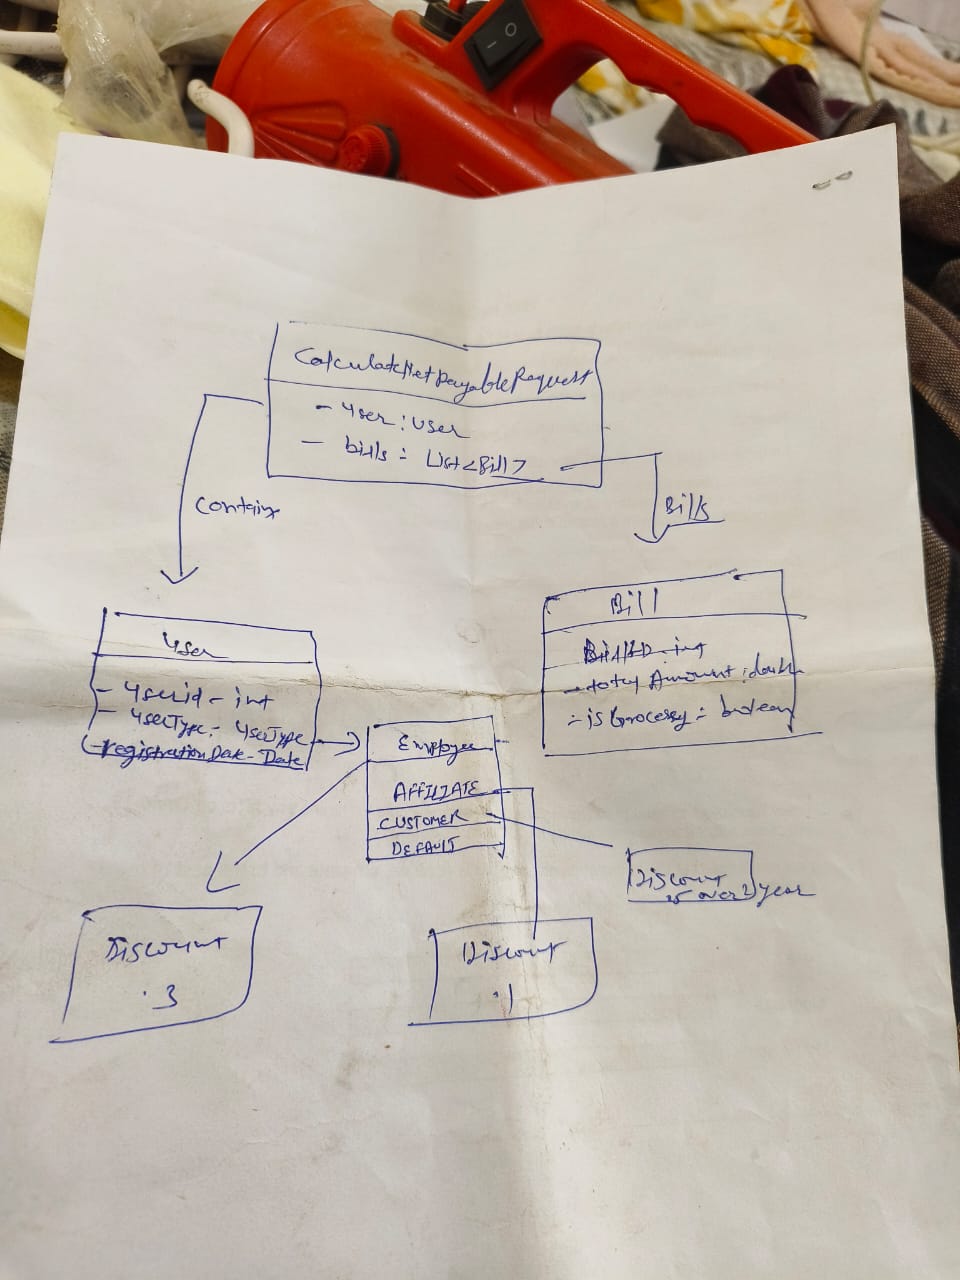 CalculateNetpayableRequest
- User : User
- bills : List<Bill>
Contains
Bills
User
- Userid - int
- UserType - UserType
- registrationDate - Date
Bill
BillID - int
- total Amount : double
- isGrocesy : boolean
Employee
AFFILIATE
CUSTOMER
DEFAULT
Discount
over 2 year
Discount
.3
Discount
.1